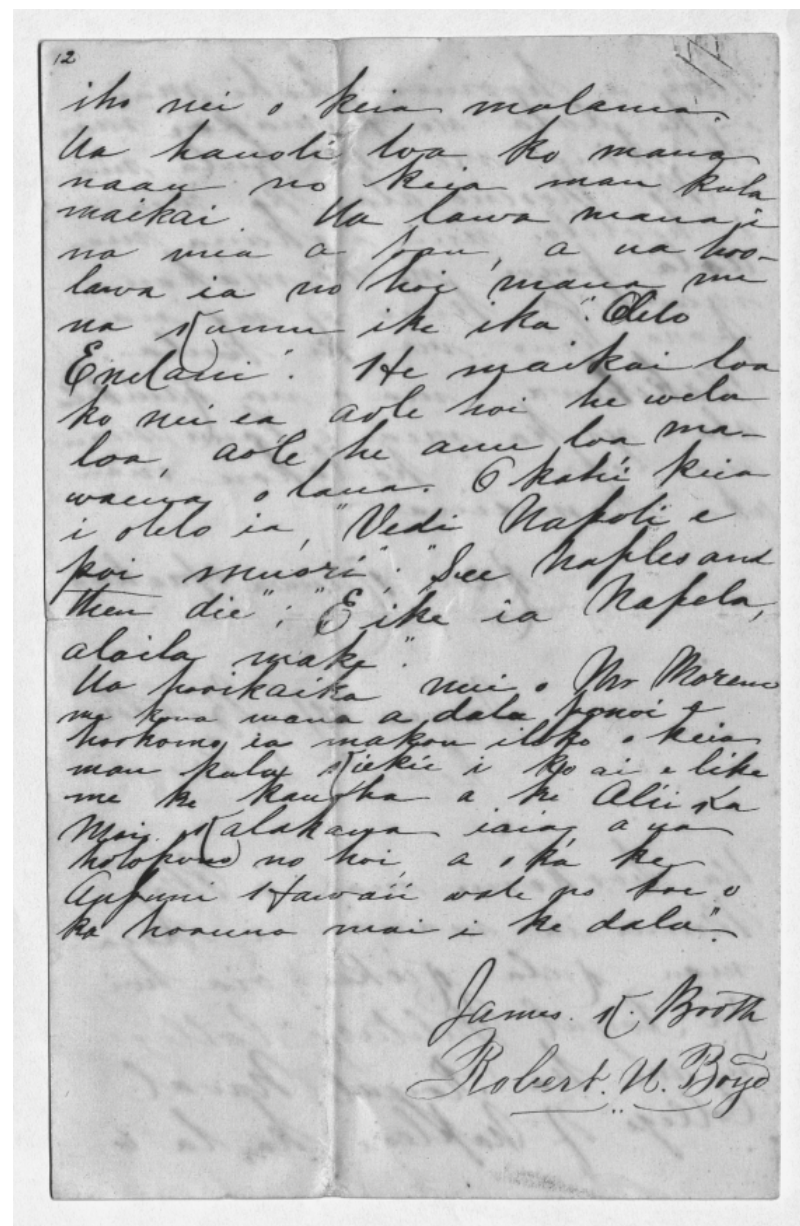 12
iho nei o keia malama.
Ua hauoli loa ko maua
naau no keia mau kula
maikai. Ua lawa maua i
na mea a pau, a ua hoo-
lawa ia no hoi maua me
na Kumu ike ika "Olelo
Enelani". He maikai loa
ko nei ea aole hoi he wela
loa, aole he anu loa ma-
waena o laua. O kahi keia
i olelo ia, "Vedi Napoli e
poi muori". "See Naples and
then die"; "E ike ia Napela,
alaila make".
Ua hooikaika nui o Mr Moreno
me kona mana a dala ponoi e
hookomo ia makou iloko o keia
mau kula Kiekie i ko ai e like
me ke kauoha a ke Alii Ka
Moi Kalakaua iaia, a ua
holopono no hoi, a o ka ke
Aupuni Hawaii wale no koe o
ka hoouna mai i ke dala".
James. K. Booth
Robert. N. Boyd